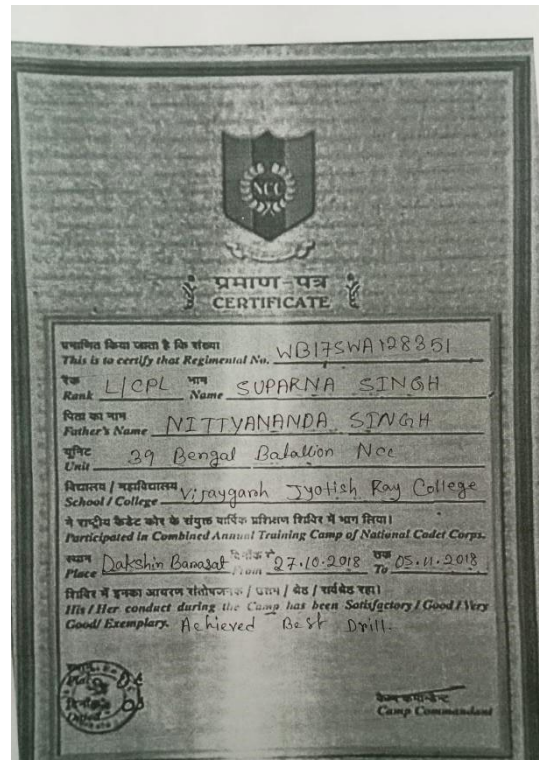 NCC
प्रमाण-पत्र
CERTIFICATE
प्रमाणित किया जाता है कि संख्या
This is to certify that Regimental No. WB17SWA128351
रैंक L/CPL नाम SUPARNA SINGH
Rank Name
पिता का नाम
Father's Name NITTYANANDA SINGH
यूनिट
Unit 39 Bengal Batallion Ncc
विद्यालय / महाविद्यालय
School / College Vijaygarh Jyotish Ray College
ने राष्ट्रीय कैडेट कोर के संयुक्त वार्षिक प्रशिक्षण शिविर में भाग लिया।
Participated in Combined Annual Training Camp of National Cadet Corps.
स्थान दिनाँक से तक
Place Dakshin Barasat From 27.10.2018 To 05.11.2018
शिविर में इनका आचरण संतोषजनक / उत्तम / श्रेष्ठ / सर्वश्रेष्ठ रहा।
His / Her conduct during the Camp has been Satisfactory / Good / Very
Good / Exemplary. Achieved Best Drill.
कैम्प कमान्डेन्ट
Camp Commandant